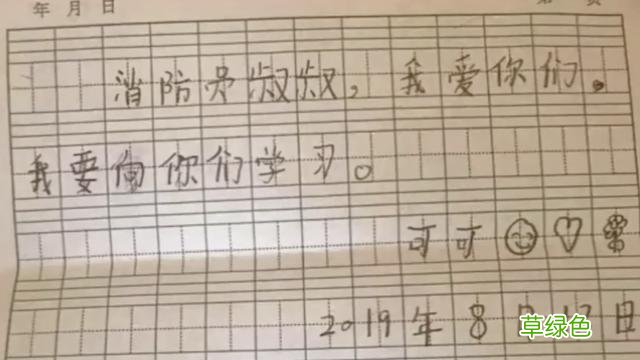 年 月 日
消防员叔叔，我爱你们。
我要向你们学习。
可可
2019年8月17日
草绿色